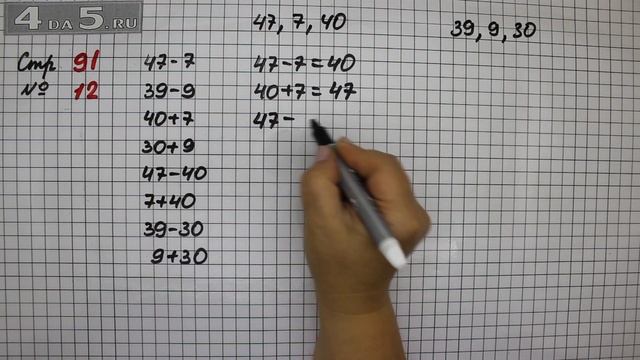 4 ДА 5.RU
47, 7, 40
39, 9, 30
Стр 91
№ 12
47-7
39-9
40+7
30+9
47-40
7+40
39-30
9+30
47-7=40
40+7=47
47-